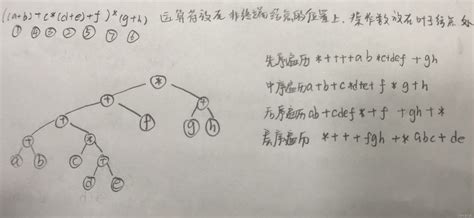 ((a+b)+c*(d+e)+f)*(g+h) 运算符放在非终端结点的位置上,操作数放在叶子结点处
① ④ ③ ② ⑤ ⑦ ⑥
先序遍历 *++++ab*c+def+gh
中序遍历 a+b+c*d+e+f*g+h
后序遍历 ab+cde+*+f+gh+*
层序遍历 *+++fgh+*abc+de
*
+ +
+ f g h
+ *
a b c +
d e